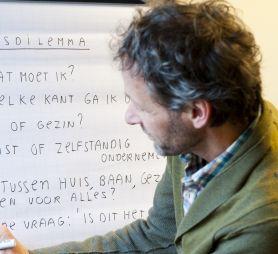 SDILEMMA
AT MOET IK?
ELKE KANT GA IK
OF GEZIN?
ST OF ZELFSTANDIG
ONDERNEME
TUSSEN HUIS, BAAN, GEZ
EN VOOR ALLES?
DE VRAAG: 'IS DIT HET